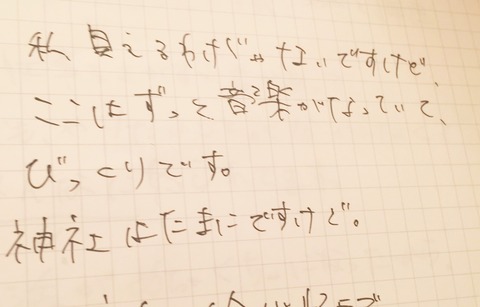 私 見えるわけじゃないですけど、
ここはずっと音楽がなっていて、
びっくりです。
神社はたまにですけど。